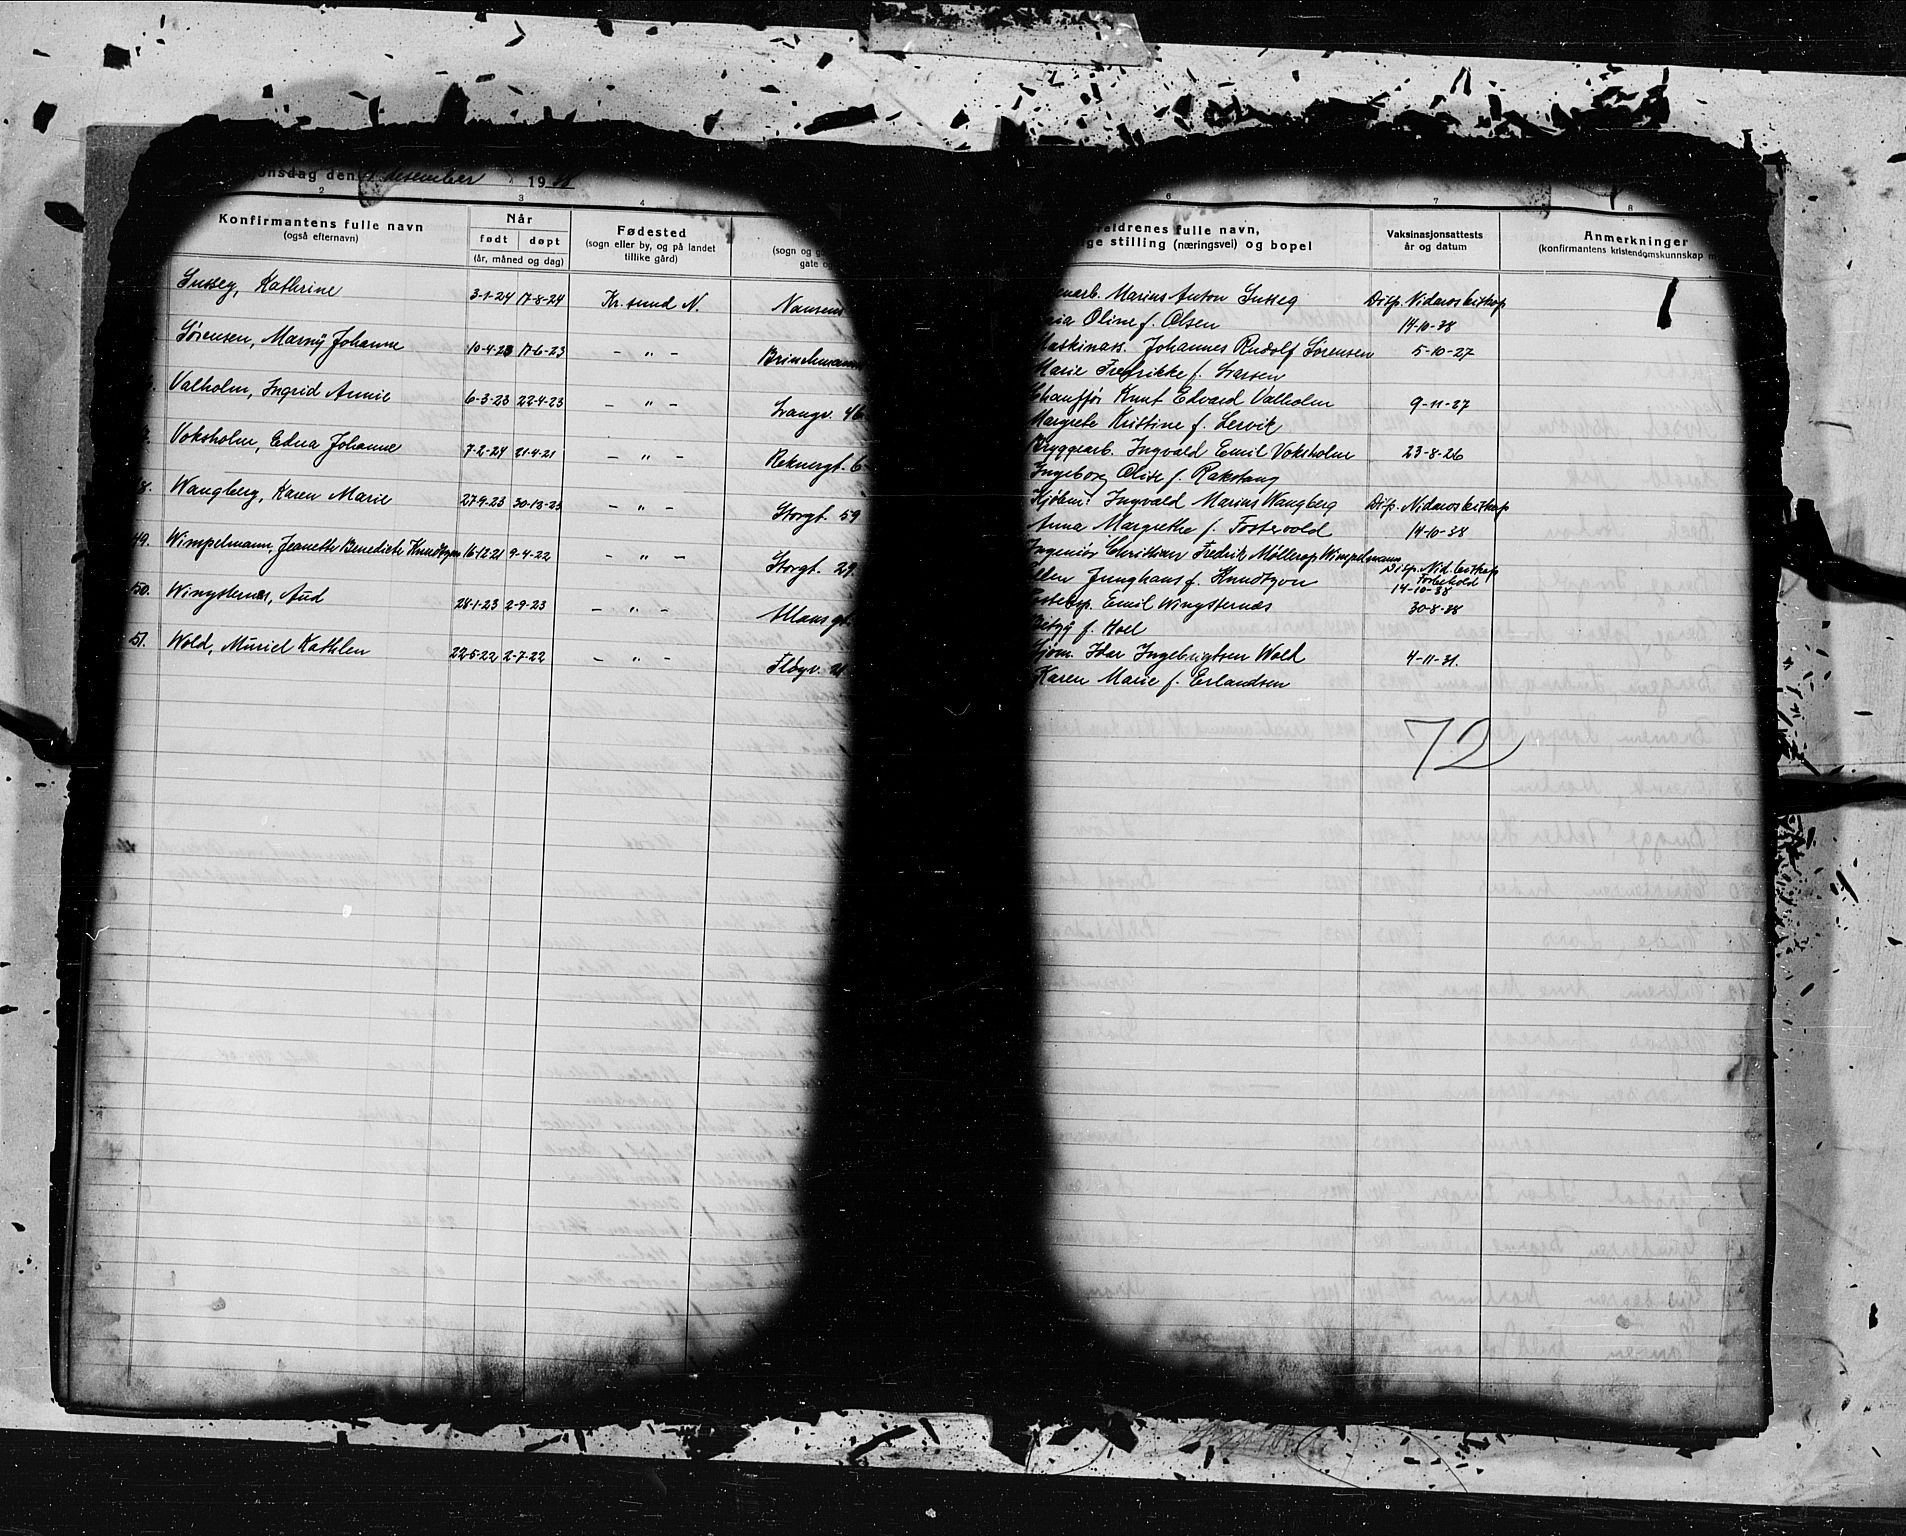 onsdag den desember 19
2 3 4
Konfirmantens fulle navn
(også efternavn)
Når
født døpt
(år, måned og dag)
Fødested
(sogn eller by, og på landet
tillike gård)
(sogn og
gate
Susseg, Kathrine 3-1-24 17-8-24 Kr.sund N. Nansens
Sørensen, Marny Johanne 10-4-23 17-6-23 – " – Brinchmanns
Valholm, Ingrid Annie 6-3-23 22-4-23 – " – Langv. 46
Voksholm, Edna Johanne 7-2-24 21-4-21 – " – Reknesgt. 6
8. Wangberg, Karen Marie 27-9-23 30-12-23 – " – Storgt. 59
49. Wimpelmann, Jeanette Benedicte Knudtzon 16-12-21 9-4-22 – " – Storgt. 29.
50. Wingsternes, Aud 28-1-23 2-9-23 – " –
51. Wold, Muriel Kathlen 22-5-22 2-7-22 – " – Fløyv. 21
6 7 8
eldrenes fulle navn,
ge stilling (næringsvei) og bopel
Vaksinasjonsattests
år og datum
Anmerkninger
(konfirmantens kristendomskunnskap m
1
narb. Marius Anton Susseg Disp. Nidaros biskop
ria Oline f. Olsen 14-10-38
Maskinass. Johannes Rudolf Sørensen 5-10-27
Marie Fredrikke f. Larsen
Chauffør Knut Edvard Valholm 9-11-37
Margrete Kristine f. Lervik
Bryggearb. Ingvald Emil Voksholm 23-8-26
Ingeborg Olise f. Rakstang
Kjøbm. Ingvald Marius Wangberg Disp. Nidaros biskop
Anna Margrethe f. Fostervold 14-10-38
Ingeniør Christian Fredrik Møllerop Wimpelmann
Ellen Junghans f. Knudtzon Disp. Nid. biskop
Forbehold
14-10-38
Emil Wingsternes 30-8-38
Betzy f. Hoel
Idar Ingebrigtsen Wold 4-11-31.
Karen Marie f. Erlandsen
72